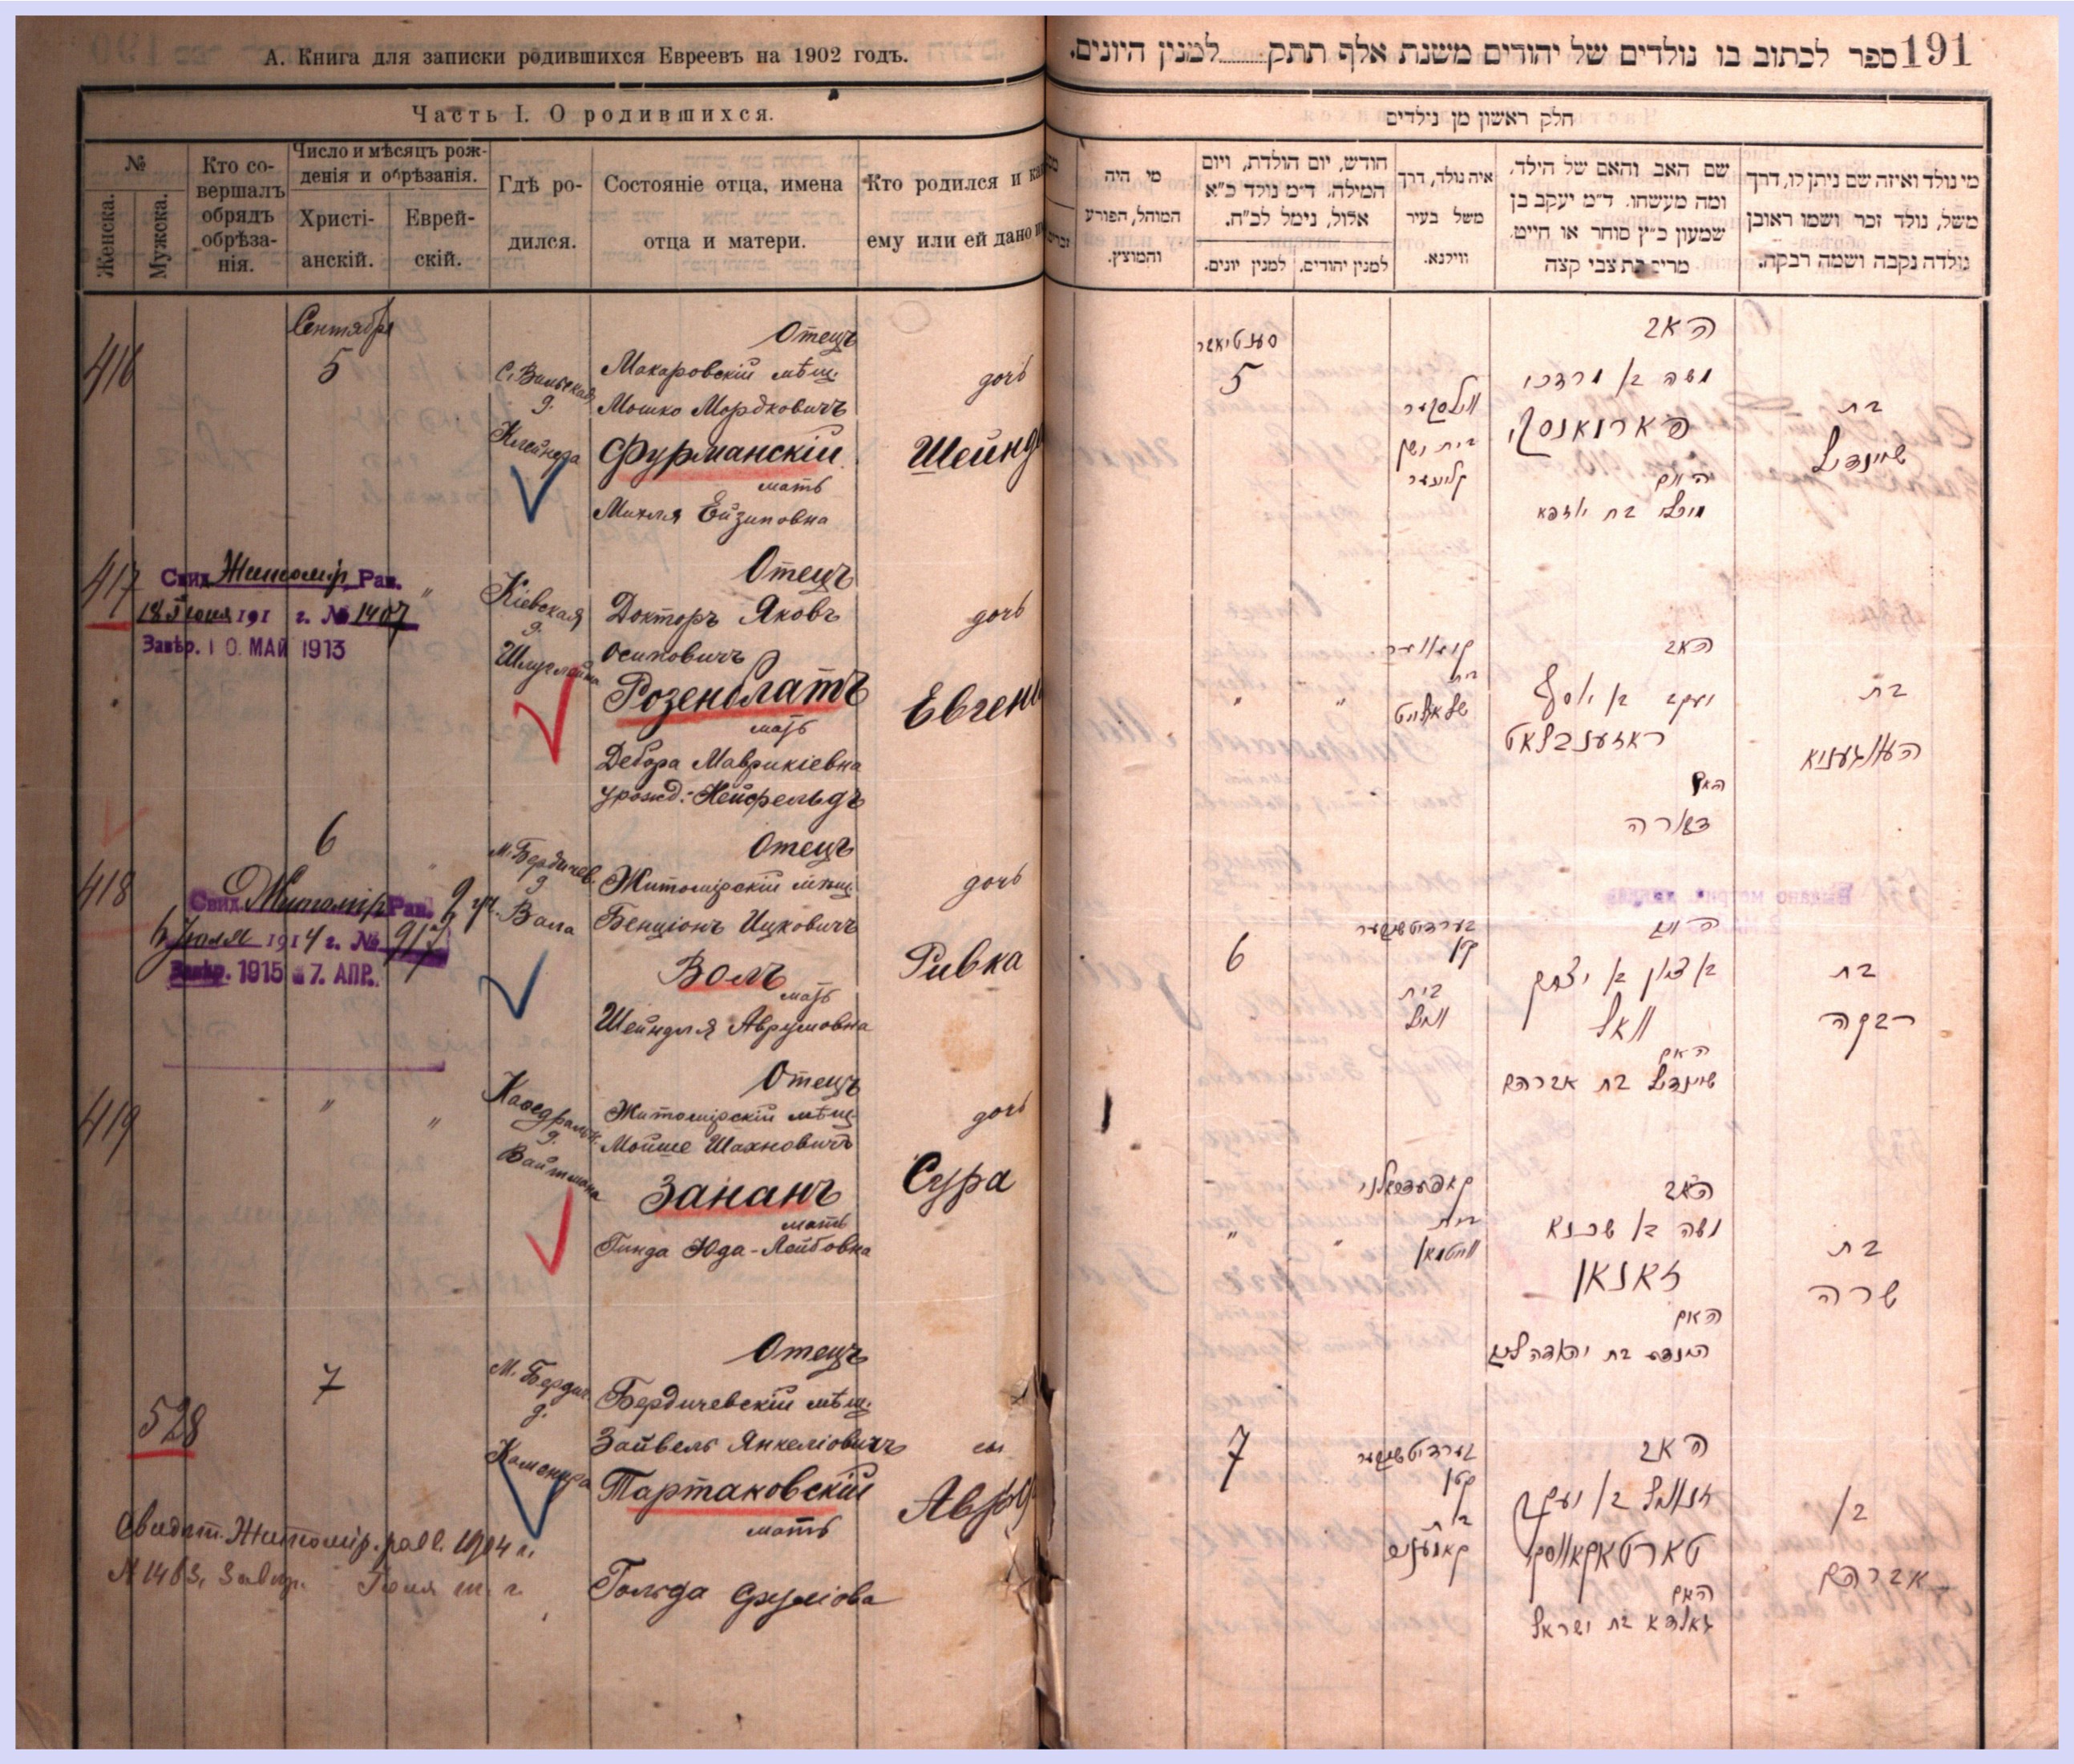 А. Книга для записки родившихся Евреевъ на 1902 годъ.
Часть I. О родившихся.
№
Женска.
Мужска.
Кто со-
вершалъ
обрядъ
обрѣза-
нія.
Число и мѣсяцъ рож-
денія и обрѣзанія.
Христі-
анскій.
Еврей-
скій.
Гдѣ ро-
дился.
Состояніе отца, имена
отца и матери.
Кто родился и как
ему или ей дано и
416
Сентября
5
д.
Клейнера
Отецъ
Макаровскій мѣщ.
Мошко Мордковичъ
Фурманскій
мать
Михля
дочь
Шейнд
417
Свид. Житомір. Рав.
18 Іюня 191 г. № 1407
Завѣр. 10. МАЙ 1913
"
Кіевская
д.
Отецъ
Докторъ Яковъ
Осиповичъ
Розенблатъ
мать
Дебора Маврикіевна
урожд: Нейфельдъ
дочь
Евгені
418
6
"
Свид. Житомір Рав.
Іюля 1914 г. № 917
Завѣр. 1915 7. АПР.
М. Бердичев.
д.
Вала
Отецъ
Житомірскій мѣщ.
Бенціонъ Ицковичъ
Волъ
мать
Шейндля Аврумовна
дочь
Ривка
419
" "
Каѳедральн.
д.
Вайтмана
Отецъ
Житомірскій мѣщ.
Мойше Шахновичъ
Зананъ
мать
Гинда Юда-Лейбовна
дочь
Сура
528
7
М. Бердич.
д.
Отецъ
Бердичевскій мѣщ.
Зайвель Янкеліовичъ
Тартаковскій
мать
Гольда Сруліова
сы
Авру
Свидѣт. Житомір. рав. 1914 г.
N 1463. Іюня т. г.
191
ספר לכתוב בו נולדים של יהודים משנת אלף תתק......למנין היונים.
חלק ראשון מן נולדים
מי היה
המוהל, הפורע
והמוצץ.
חודש, יום הולדת, ויום
המילה. ד״מ נולד כ״א
אלול, נימל לכ״ח.
למנין יונים.
למנין יהודים.
איה נולד, דרך
משל בעיר
ווילנא.
שם האב והאם של הילד,
ומה מעשהו. ד״מ יעקב בן
שמעון כ״ץ סוחר או חייט.
מרים בת צבי קצה
מי נולד ואיזה שם ניתן לו, דרך
משל, נולד זכר ושמו ראובן
נולדה נקבה ושמה רבקה.
5
האב
משה בן מרדכי
האם
בת
שיינדיל
" "
בית
האב
יעקב בן יוסף
ראזענבלאט
האם
בת
6
קטן
בית
וואל
האב
בן ציון בן יצחק
וואל
האם
שיינדיל בת אברהם
בת
רבקה
" "
בית
האב
משה בן שכנא
זאנאן
האם
הינדא בת יהודה ליב
בת
שרה
7
קטן
בית
האב
זאוויל בן יעקב
טארטאקאווסקי
האם
גאלדא בת ישראל
בן
אברהם